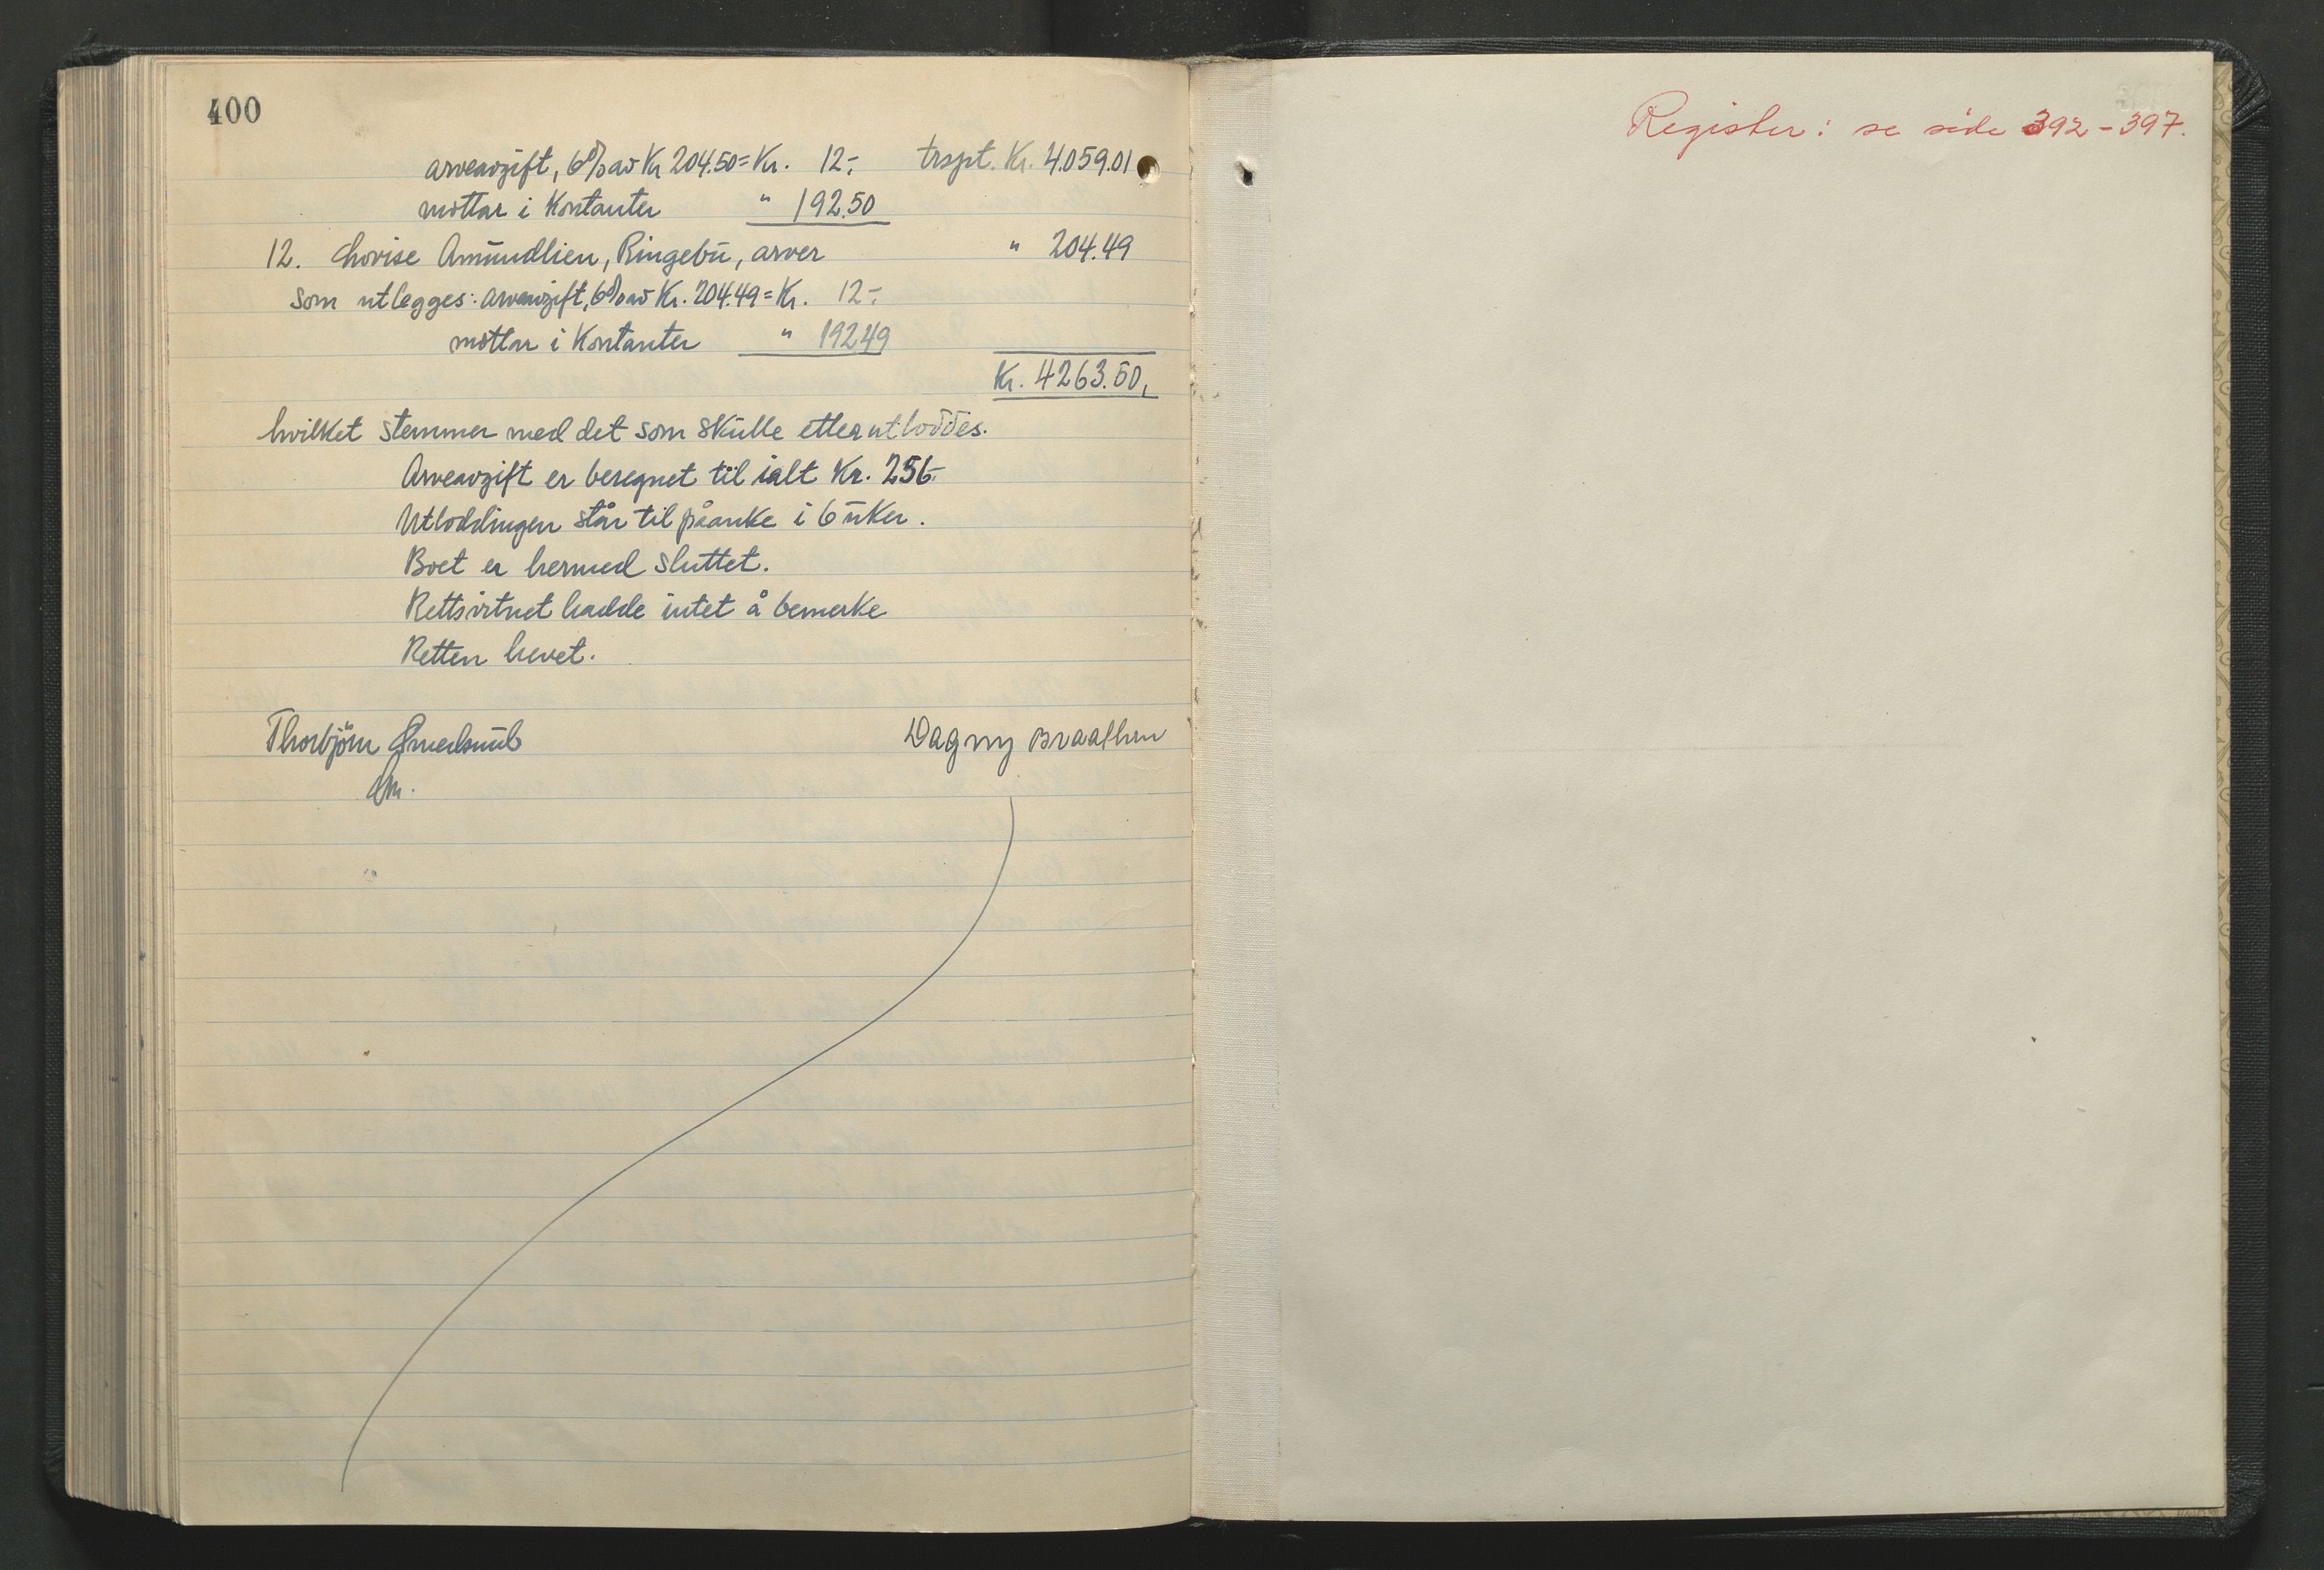 400
arveavgift, 6% av Kr 204.50 = Kr. 12.- trspt. Kr. 4.059.01
mottar i Kontanter " 192.50
12. Lovise Amundlien, Ringebu, arver " 204.49
som utlegges: arveavgift, 6% av Kr. 204.49 = Kr. 12-
mottar i Kontanter " 192.49
Kr. 4263.50,
hvilket stemmer med det som skulle etterutloddes.
Arveavgift er beregnet til ialt Kr. 256.-
Utloddingen står til påanke i 6 uker.
Boet er hermed sluttet.
Rettsvitnet hadde intet å bemerke
Retten hevet.
Thorbjörn Dagny Braathen
fm.
Register: se side 392-397.